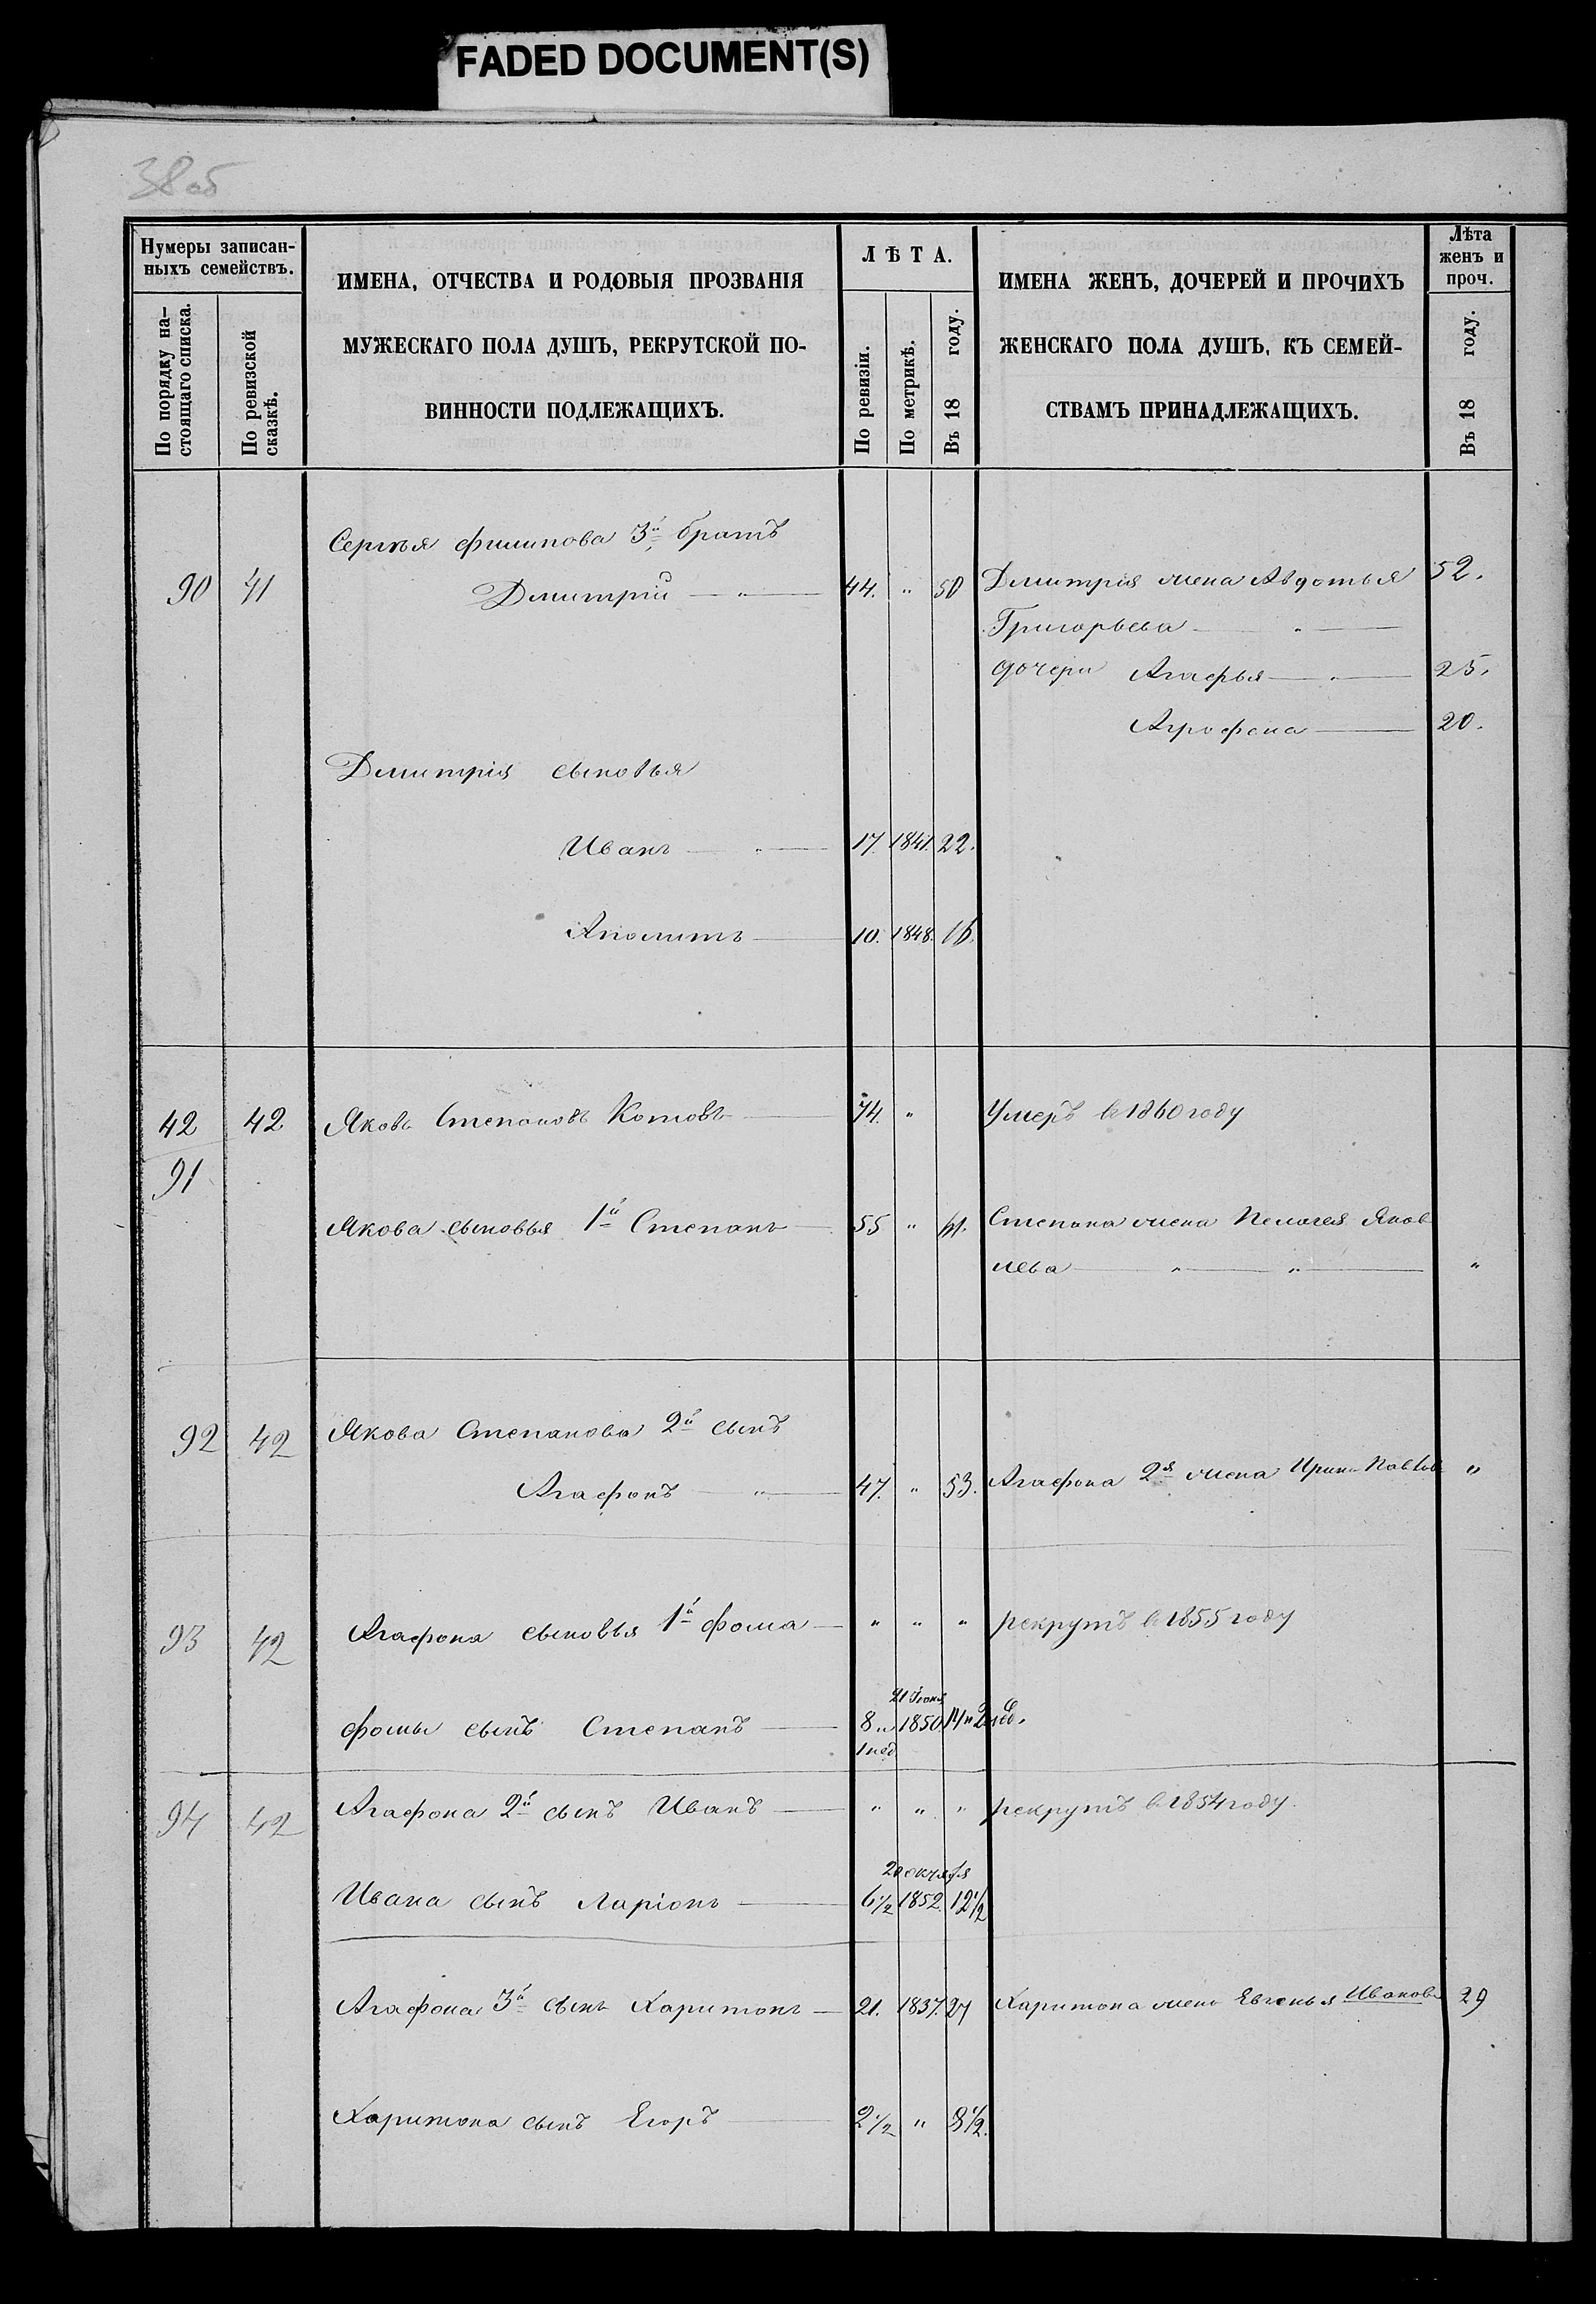 FADED DOCUMENT(S)
38 об
Нумеры записан-
ныхъ семействъ.
По порядку на-
стоящаго списка.
По ревизской
сказкѣ.
ИМЕНА, ОТЧЕСТВА И РОДОВЫЯ ПРОЗВАНІЯ
МУЖЕСКАГО ПОЛА ДУШЪ, РЕКРУТСКОЙ ПО-
ВИННОСТИ ПОДЛЕЖАЩИХЪ.
ЛѢТА.
По ревизіи.
По метрикѣ.
Въ 18 году.
ИМЕНА ЖЕНЪ, ДОЧЕРЕЙ И ПРОЧИХЪ
ЖЕНСКАГО ПОЛА ДУШЪ, КЪ СЕМЕЙ-
СТВАМЪ ПРИНАДЛЕЖАЩИХЪ.
Лѣта
женъ и
проч.
Въ 18 году.
Сергѣя Филипова 3й братъ
90 41 Дмитрій — " — 44. " 50 Дмитрія жена Авдотья 52.
Григорьева — " —
дочери Агафья — " — 25.
Агрофена — 20.
Дмитрія сыновья
Иванъ — " — 17. 1841. 22.
Аполитъ — 10. 1848. 16.
42 42 Яковъ Степановъ Котовъ — 74. " Умеръ в 1860 году
91
Якова сыновья 1й Степанъ — 55 " 61. Степана жена Пелагея Яков
лева — " — " — "
92 42 Якова Степанова 2й сынъ
Агафонъ — " — 47. " 53. Агафона 2я жена Ирина Павлов "
93 42 Агафона сыновья 1й Фома — " " " рекрутъ в 1855 году
21 Іюня
Фомы сынъ Степанъ — 8 " 1850. 14 " 2 нед.
1 нед
94 42 Агафона 2й сынъ Иванъ — " " " рекрутъ в 1854 году.
20 октября
Ивана сынъ Ларіонъ — 6 1/2 1852. 12 1/2
Агафона 3й сынъ Харитонъ — 21. 1837. 27 Харитона жена Евгенья Иванов 29
Харитона сынъ Егоръ — 2 1/2 " 8 1/2.